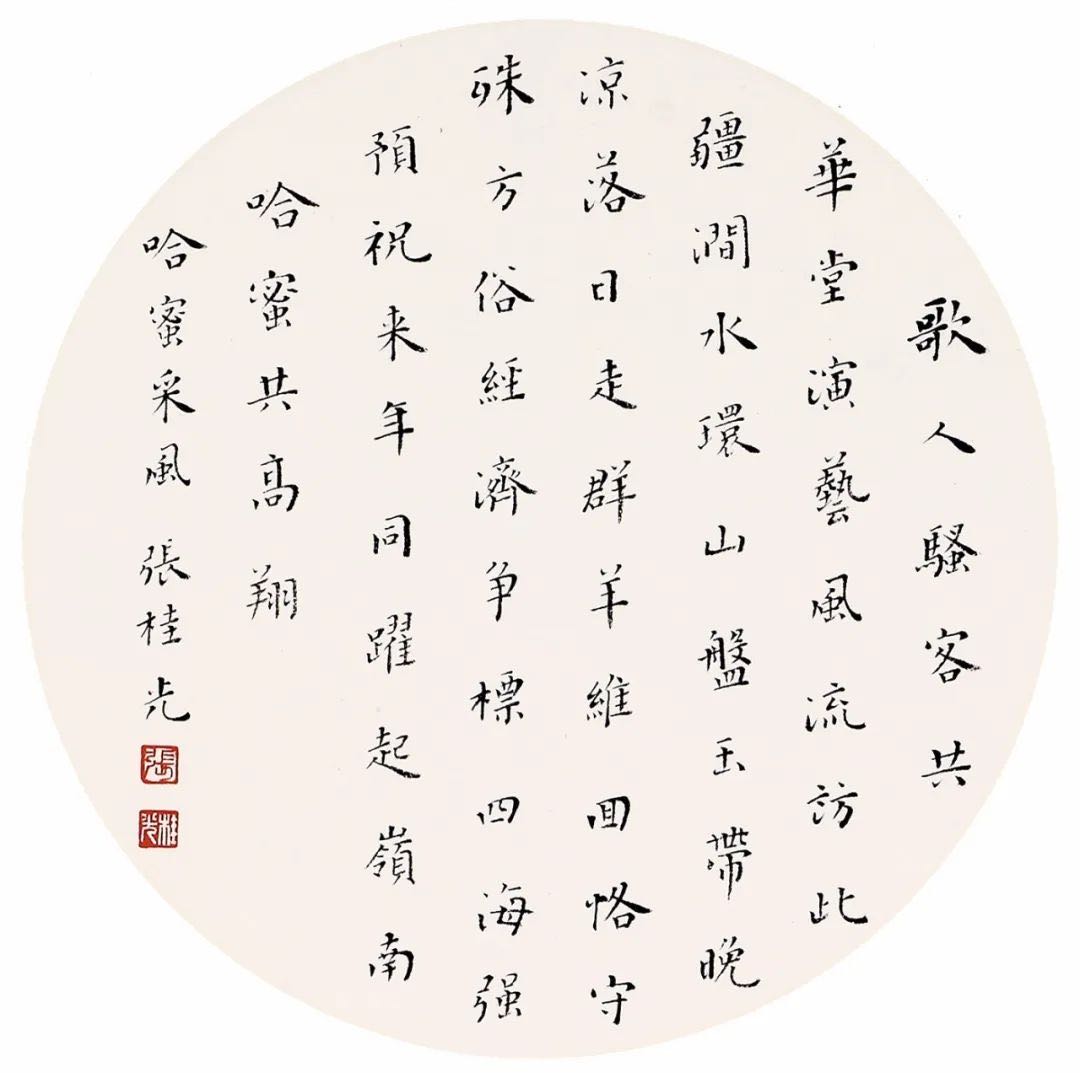 歌人騷客共
華堂演藝風流訪此
疆澗水環山盤玉帶晚
涼落日走群羊維回恪守
殊方俗經濟争標四海强
預祝来年同躍起嶺南
哈蜜共高翔
哈蜜采風 張桂光
張
桂光